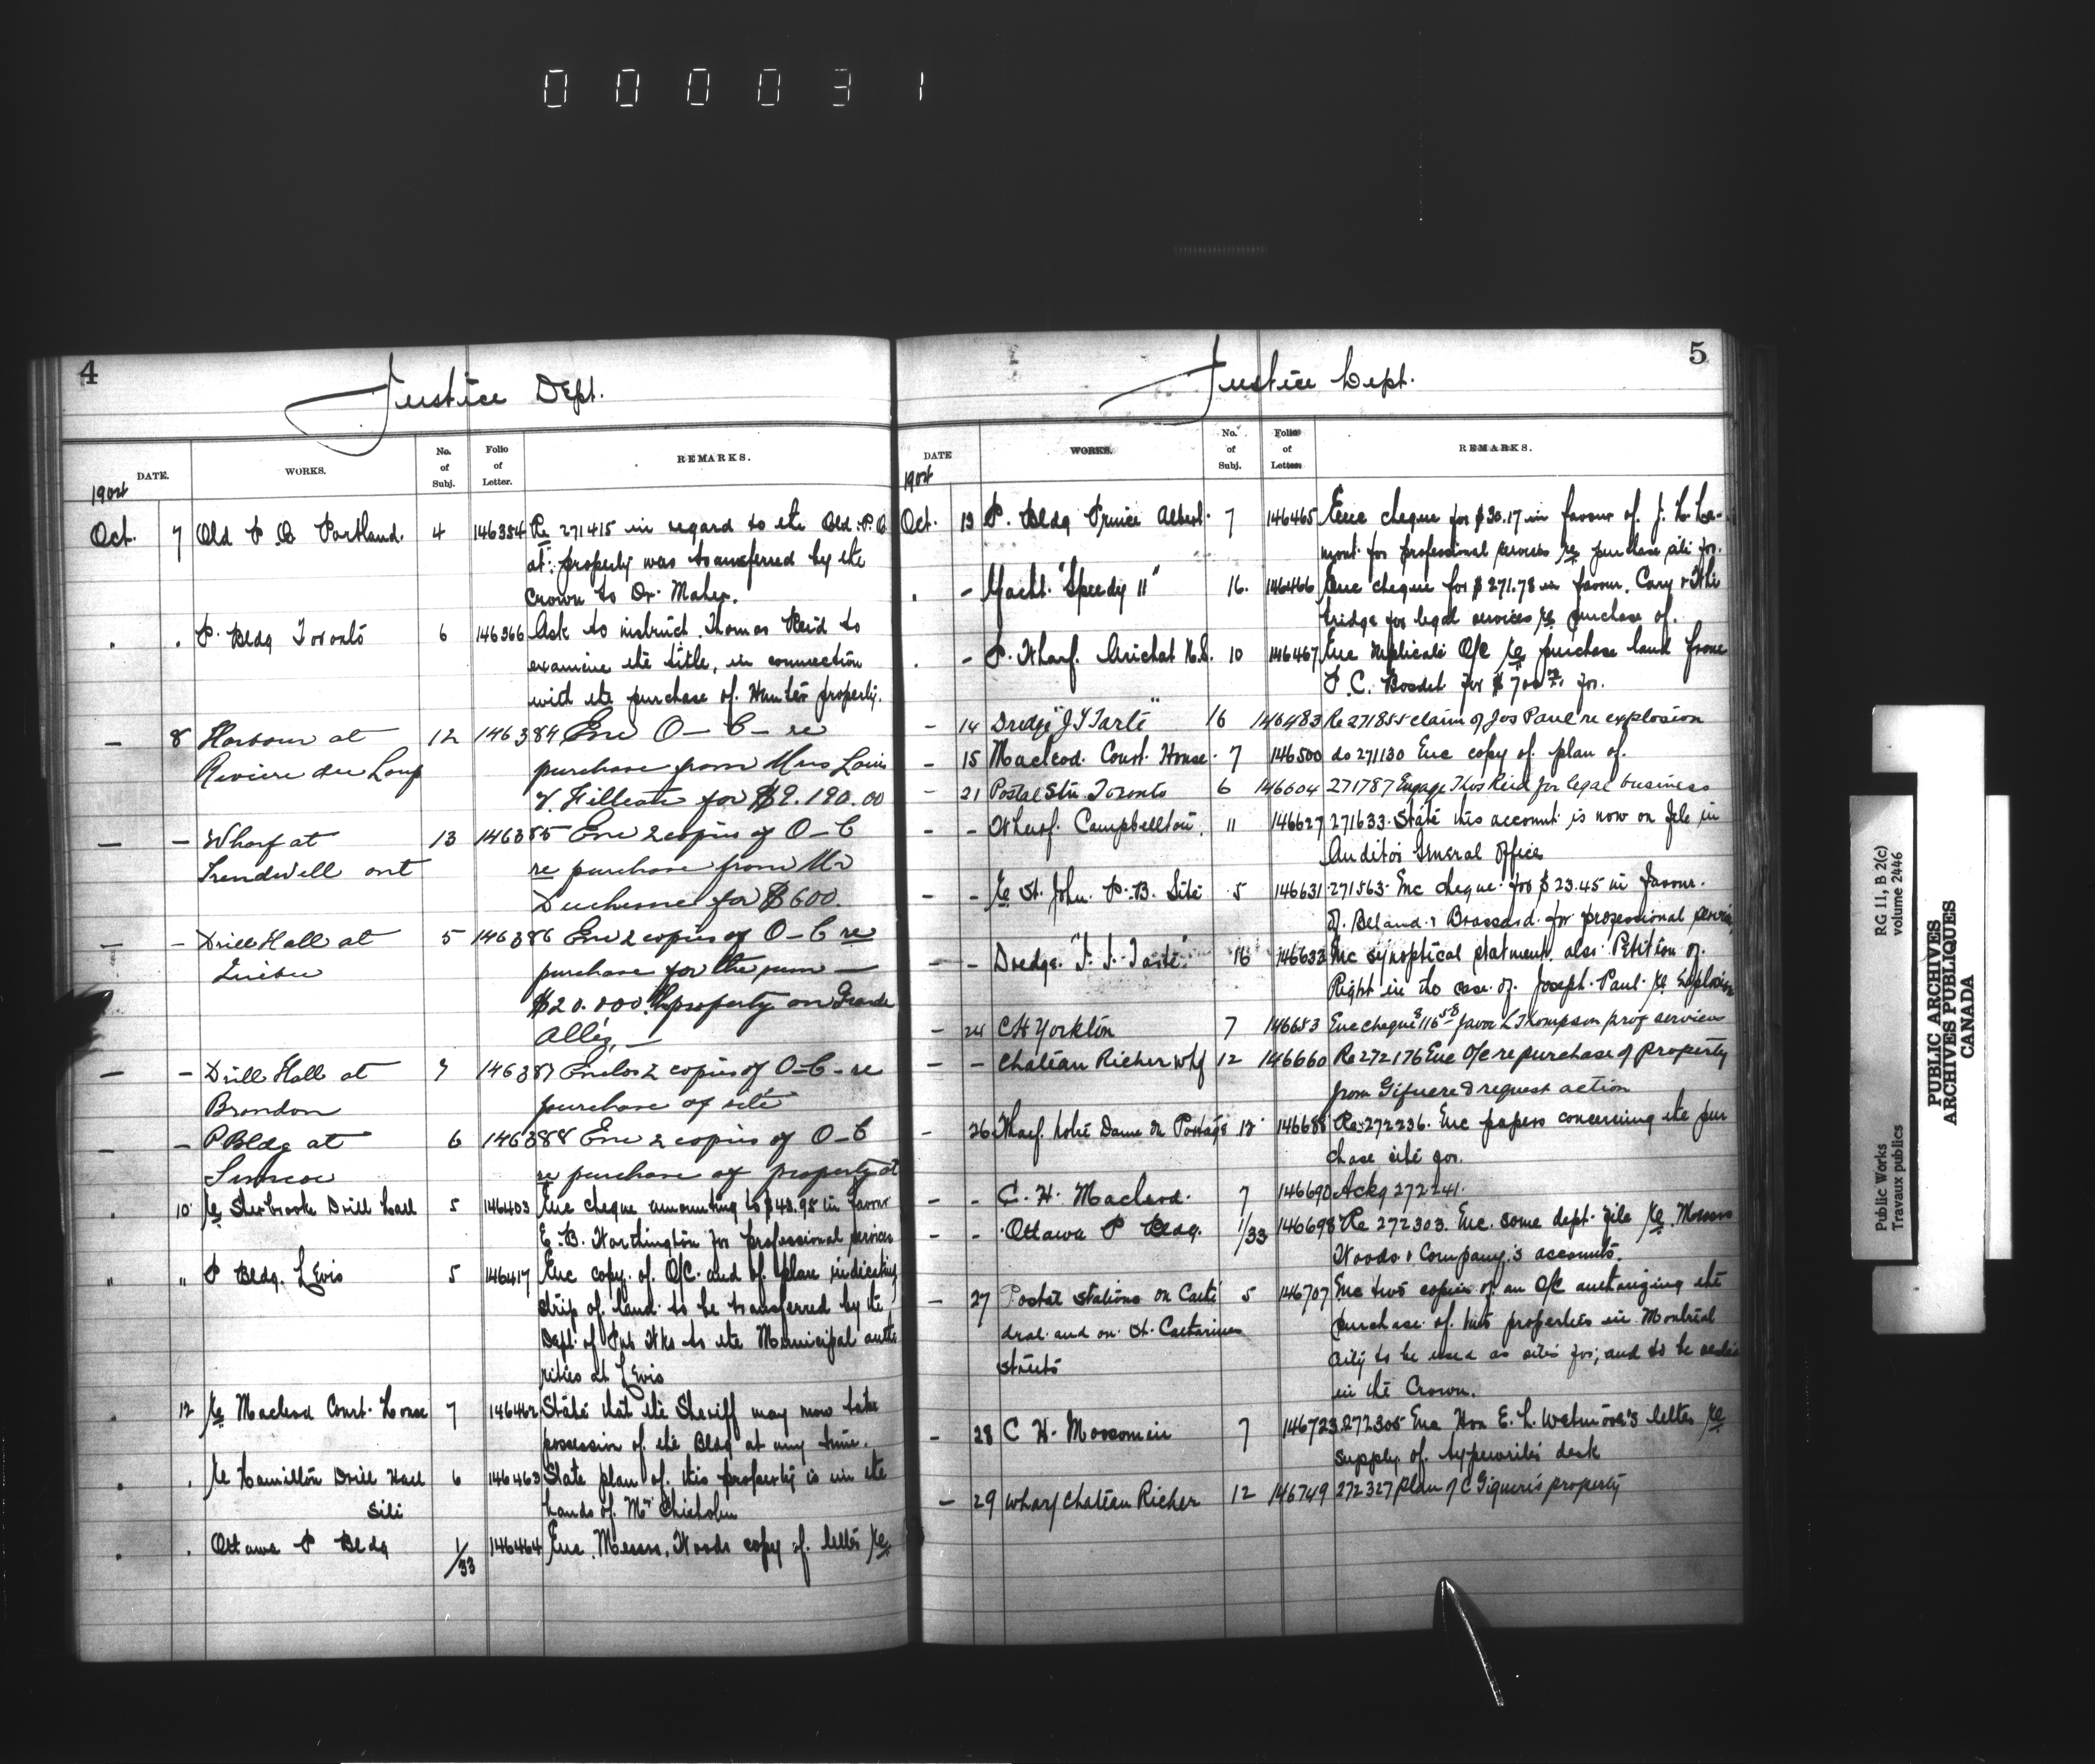 0 0 0 0 3 1
4
Justice Dept.
DATE. WORKS. No. of Subj. Folio of Letter. REMARKS.
1904
Oct. 7 Old P.O Portland. 4 146354 Re 271415 in regard to the Old P.O.
at: property was transferred by the
Crown to Dr. Maher.
" " P. Bldg Toronto 6 146366 Ask to instruct Thomas Reid to
examine the title, in connection
with the purchase of Hunter property.
— 8 Harbour at 12 146384 Enc O–C– re
Riviere du Loup purchase from Mrs Louis
for $9.190.00
— — Wharf at 13 146385 Enc 2 copies of O–C
Trendwell ont re purchase from Mr
Duchesne for $600.
— — Drill Hall at 5 146386 Enc 2 copies of O–C re
Quebec purchase for the sum —
$20.000 property on Grande
Alleé, —
— — Drill Hall at 7 146387 Enclos 2 copies of O–C – re
Brandon purchase of site
— — P Bldg at 6 146388 Enc 2 copies of O–C
Simcoe re purchase of property at
" 10 Re Sherbrooke Drill Hall 5 146403 Enc cheque amounting to $43.98 in favour
E. B. Worthington for professional services
" " P Bldg. Levis 5 146417 Enc copy of O/C. and of plan indicating
strip of land to be transferred by the
Dept. of Pub Wks to the Municipal autho
rities at Levis
" 12 Re Macleod Court House 7 146462 State that the Sheriff may now take
possession of the Bldg at any time.
" " Re Hamilton Drill Hall 6 146463 State plan of this property is in the
Site hands of Mr Chisholm
" " Ottawa P Bldg 1/33 146464 Enc. Messrs. Woods copy of letter Re
5
Justice Dept.
DATE WORKS. No. of Subj. Folio of Letter. REMARKS.
1904
Oct. 13 P. Bldg Prince Albert. 7 146465 Enc cheque for $30.17 in favour of J. H. La-
mont for professional services re purchase site for.
" – Yacht "Speedy II" 16. 146466 Enc cheque for $271.78 in favour. Cary &
for legal services re purchase of.
" – P. Wharf. Arichat N.S. 10 146467 Enc duplicate O/C Re purchase land from
P. C. Bosdet for $700 for.
– 14 Dredge "J I Tarte" 16 146483 Re 271855 claim of Jos Paul re explosion
– 15 Macleod Court House. 7 146500 do 271130 Enc copy of plan of.
– 21 Postal Stn Toronto 6 146604 271787 Engage Thos Reid for legal business
– – Wharf. Campbellton. 11 146627 271633. State this account is now on file in
Auditor General Office
– – Re St. John. P.B. Site 5 146631 271563. Enc cheque for $23.45 in favour.
of. Belland & Brassard for professional service
– – Dredge "J. I. Tarte" 16 146632 Enc synoptical statement also Petition of
Right in the case of Joseph Paul Re Explosion
– 24 CH Yorkton 7 146653 Enc cheque $116.50 favor L Thompson prof services
– – Chateau Richer whf 12 146660 Re 272176 Enc O/C re purchase of property
from Giguere & request action
– 26 Wharf. Notre Dame du Portage 12 146688 Re 272236. Enc papers concerning the pur
chase site for.
– – C. H. Macleod. 7 146690 Ackg 272241.
– – Ottawa P Bldg. 1/33 146698 Re 272303. Enc. some dept. file Re. Messrs
Woods & Company's accounts.
– 27 Postal Stations on Cathe 5 146707 Enc two copies of an O/C authorizing the
dral and on St. Catharines purchase of two properties in Montreal
streets city to be used as sites for; and to be
in the Crown.
– 28 C H. Moosomin 7 146723 272305 Enc Hon E. L. Wetmore's letter Re
supply of typewriter desk
– 29 Wharf Chateau Richer 12 146749 272327 plan of C Giguere's property
Public Works RG 11, B 2(c)
Travaux publics volume 2446
PUBLIC ARCHIVES
ARCHIVES PUBLIQUES
CANADA